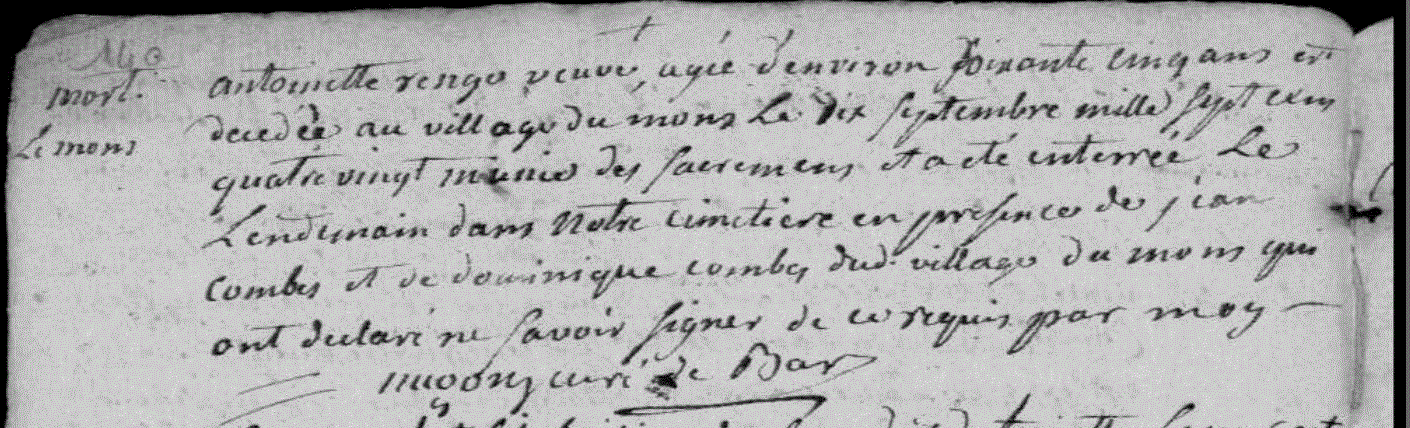 mort.
Le mons
antoinette rengo veuve agée d'environ soixante cinq ans est
decedée au village du mons Le dix septembre mille sept cens
quatre vingt munie des sacremens et a eté enterrée Le
Lendemain dans notre cimetiere en presence de jean
combes et de dominique combes dud. village du mons qui
ont declaré ne savoir signer de ce requis par moy
curé de Bar